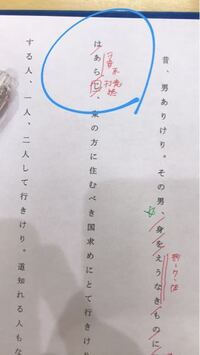 昔、男ありけり。その男、身をえうなきものに
形・ク・体
はあらじ、東の方に住むべき国求めにとて行きけり
打消
する人、一人、二人して行きけり。道知れる人もな